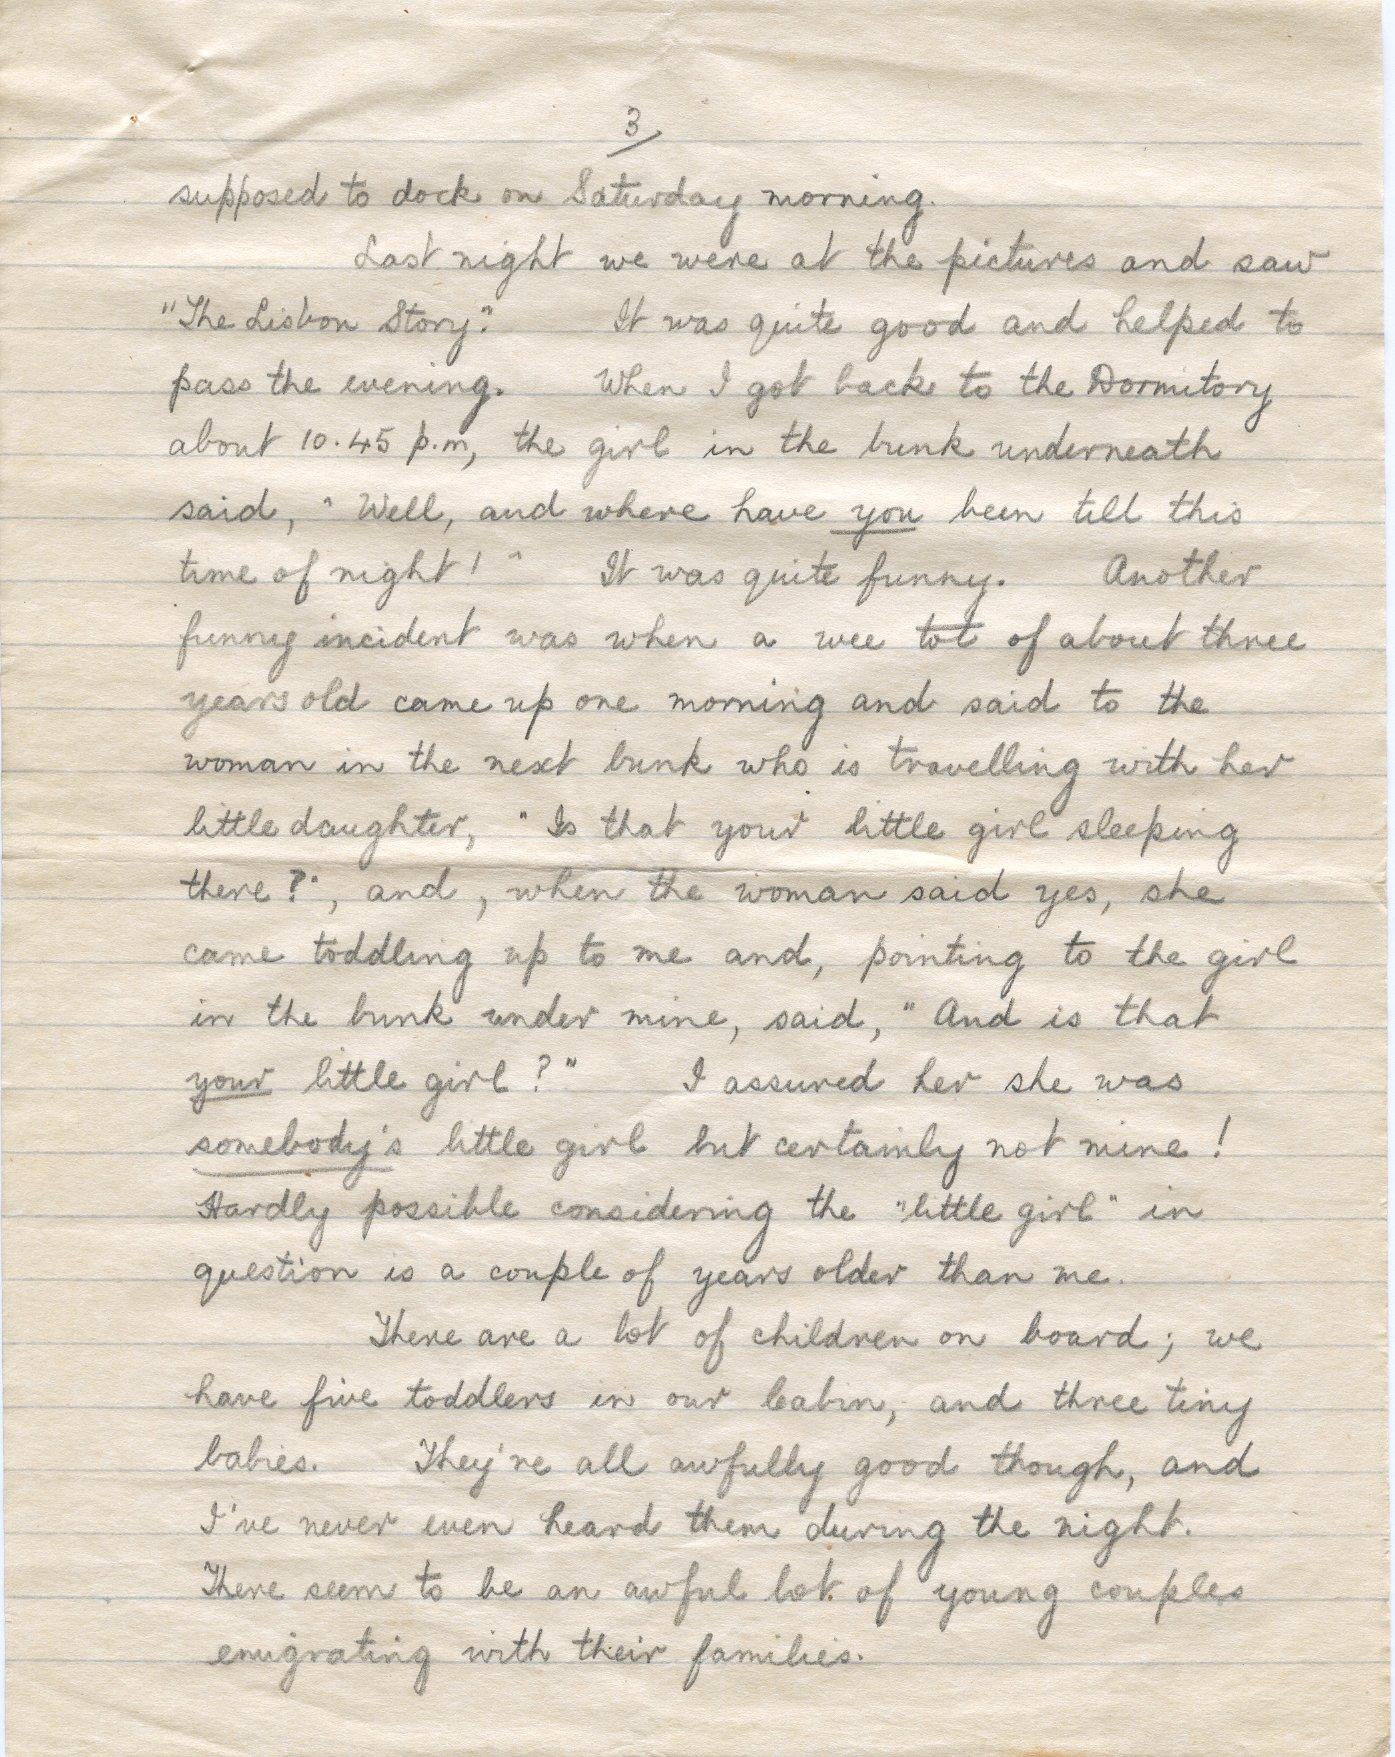 3
supposed to dock on Saturday morning.
Last night we were at the pictures and saw
"The Lisbon Story." It was quite good and helped to
pass the evening. When I got back to the Dormitory
about 10.45 p.m, the girl in the bunk underneath
said, "Well, and where have you been till this
time of night!" It was quite funny. Another
funny incident was when a wee tot of about three
years old came up one morning and said to the
woman in the next bunk who is travelling with her
little daughter, "Is that your little girl sleeping
there?", and, when the woman said yes, she
came toddling up to me and, pointing to the girl
in the bunk under mine, said, "And is that
your little girl?" I assured her she was
somebody's little girl but certainly not mine!
Hardly possible considering the "little girl" in
question is a couple of years older than me.
There are a lot of children on board; we
have five toddlers in our Cabin, and three tiny
babies. They're all awfully good though, and
I've never even heard them during the night.
There seem to be an awful lot of young couples
emigrating with their families.